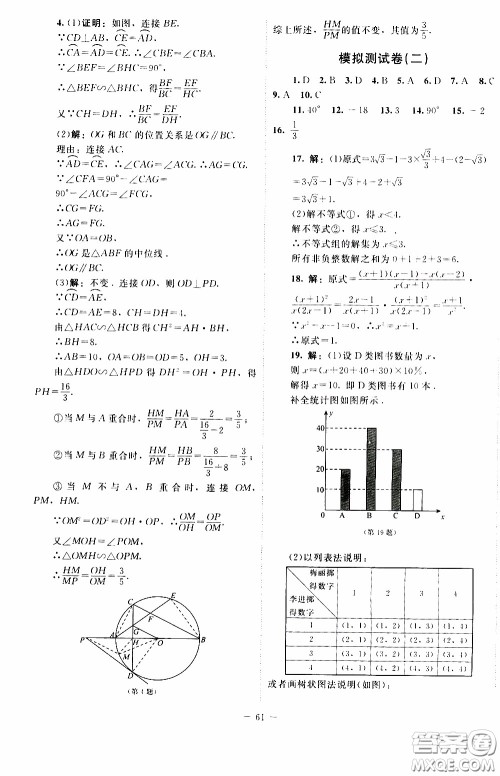 4.(1)证明：如图，连接BE.
∵CD⊥AB，CE=AD，
∴CA=AD=CE．∴∠CBE=∠ABC．
∵∠BEF=∠BHC=90°，
∴△BEF∽△BHC，∴BF/BC=EF/HC．
又∵CH=DH，∴BF/BC=EF/DH．
(2)解：OG和BC的位置关系是OG∥BC．
理由：连接AC．
∵AD=CE，∴∠CAG=∠ACG．
∵∠CFA=90°－∠CAG=
90°－∠ACG=∠FCG，
∴CG=FG．
∴AG=FG．
又∵OA=OB，
∴OG是△ABF的中位线．
∴OG∥BC．
(3)解：不变．连接OD，则OD⊥PD．
∵CD=AE，
∴CD=AE=8．∴CH=DH=4．
由△HAC∽△HCB得CH²=AH·BH，
∴BH=8．
∴AB=10，OA=OB=5，OH=3．
由△HDO∽△HPD得DH²=OH·PH，得
PH=16/3．
①当M与A重合时，HM/PM=HA/PA=2/(16/3－2)=3/5；
②当M与B重合时，HM/PM=HB/PB=8/(16/3+8)=3/5；
③当M不与A、B重合时，连接OM，
PM、HM．
∵OM²=OD²=OH·OP，∴OM/OH=OP/OM．
又∠MOH=∠POM，
∴△OMH∽△OPM．
∴HM/MP=OH/OM=3/5．
C
E
F
G
P
A
H
O
B
M
D
(第4题)
综上所述，HM/PM的值不变，其值为3/5．
模拟测试卷(二)
1.D 2.B 3.D 4.A 5.D 6.A 7.B 8.C
9.A 10.C
11.40° 12.－18 13.3 14.90% 15.－2
16.1/3
17.解：(1)原式=3√3－1－3×√3/3+4－(2－√3)
=3√3－1－√3+4－2+√3
=3√3+1．
(2)解不等式①，得x＜4．
解不等式②，得x≤3．
∴不等式组的解集为x≤3．
所有非负整数解之和为0+1+2+3=6．
18.解：原式=(x+1)(x－1)－x(x－2)/x(x+1)
÷x(2x－1)/(x+1)²=2x－1/x(x+1)·(x+1)²/x(2x－1)=x+1/x²．
∵x²=x+1，∴原式=1．
19.解：(1)设D类图书数量为x，
则x=(x+20+40+30)×10%．
解得x=10．即D类图书有10本．
补全统计图如图所示．
y
40
30
20
10
0
A B C D x
(第19题)
(2)以列表法说明：
梅丽掷得数字 李进掷得数字 1 2 3 4
1 (1，1) (1，2) (1，3) (1，4)
2 (2，1) (2，2) (2，3) (2，4)
3 (3，1) (3，2) (3，3) (3，4)
4 (4，1) (4，2) (4，3) (4，4)
或者画树状图法说明(如图)：
－ 61 －
答案圈
MXQE.COM